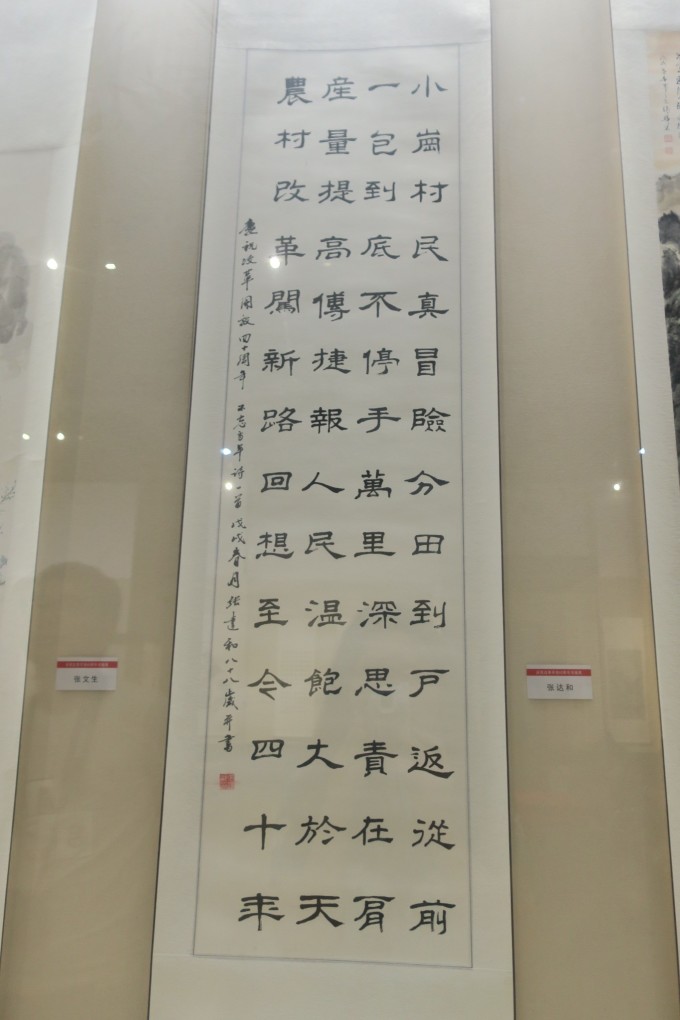 小崗村民真冒險分田到戶返從前
一包到底不停手萬里深思責在肩
産量提高傳捷報人民温飽大於天
農村改革闖新路回想至今四十年
慶祝改革開放四十周年 不忘当年诗一首戊戌春月张達和八十八歲年書
张文生
张达和